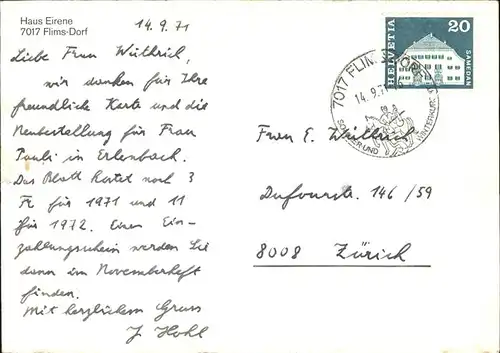 Haus Eirene
7017 Flims-Dorf
14.9.71
Liebe Frau Wüthrich,
wir danken für Ihre
freundliche Karte und die
Neubestellung für Frau
Pauli in Erlenbach.
Das Blatt kostet noch 3
Fr für 1971 und 11
für 1972. Einen Ein-
zahlungsschein werden Sie
dann im Novemberheft
finden.
Mit herzlichem Gruss
J. Hohl
HELVETIA
20
SAMEDAN
7017 FLIMS-DORF
14.9.71
SOMMER UND
Frau E. Wüthrich
Dufourstr. 146/59
8008 Zürich